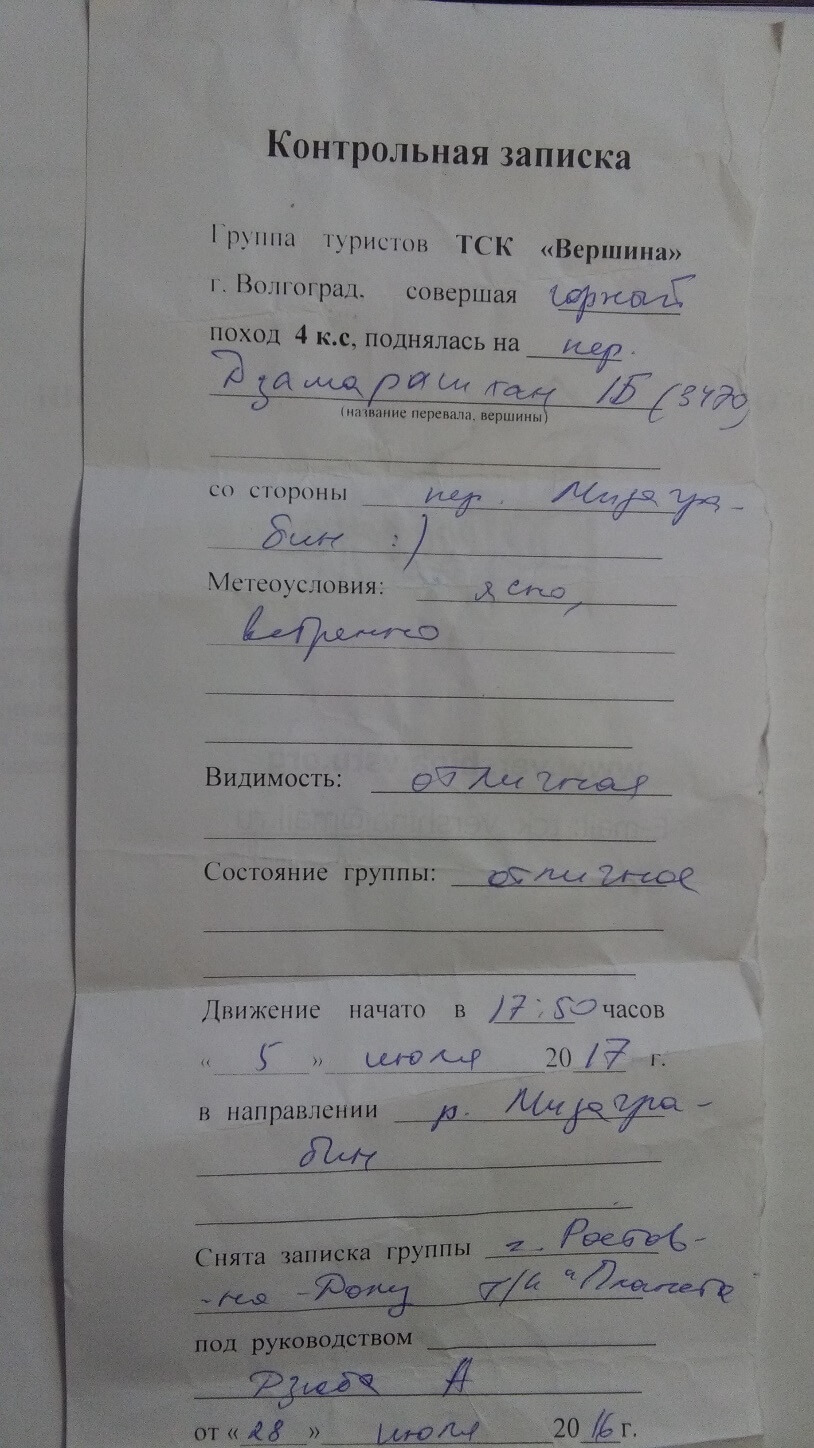 Контрольная записка
Группа туристов ТСК «Вершина»
г. Волгоград, совершая горный
поход 4 к.с, поднялась на пер.
Дзамарашткан 1Б (3470)
(название перевала, вершины)
со стороны пер. Мидагра-
бин :)
Метеоусловия: ясно,
ветренно
Видимость: отличная
Состояние группы: отличное
Движение начато в 17:50 часов
« 5 » июля 2017 г.
в направлении р. Мидагра-
бин
Снята записка группы г. Ростов-
-на-Дону т/к "Планета
под руководством
А
от « 28 » июля 2016 г.